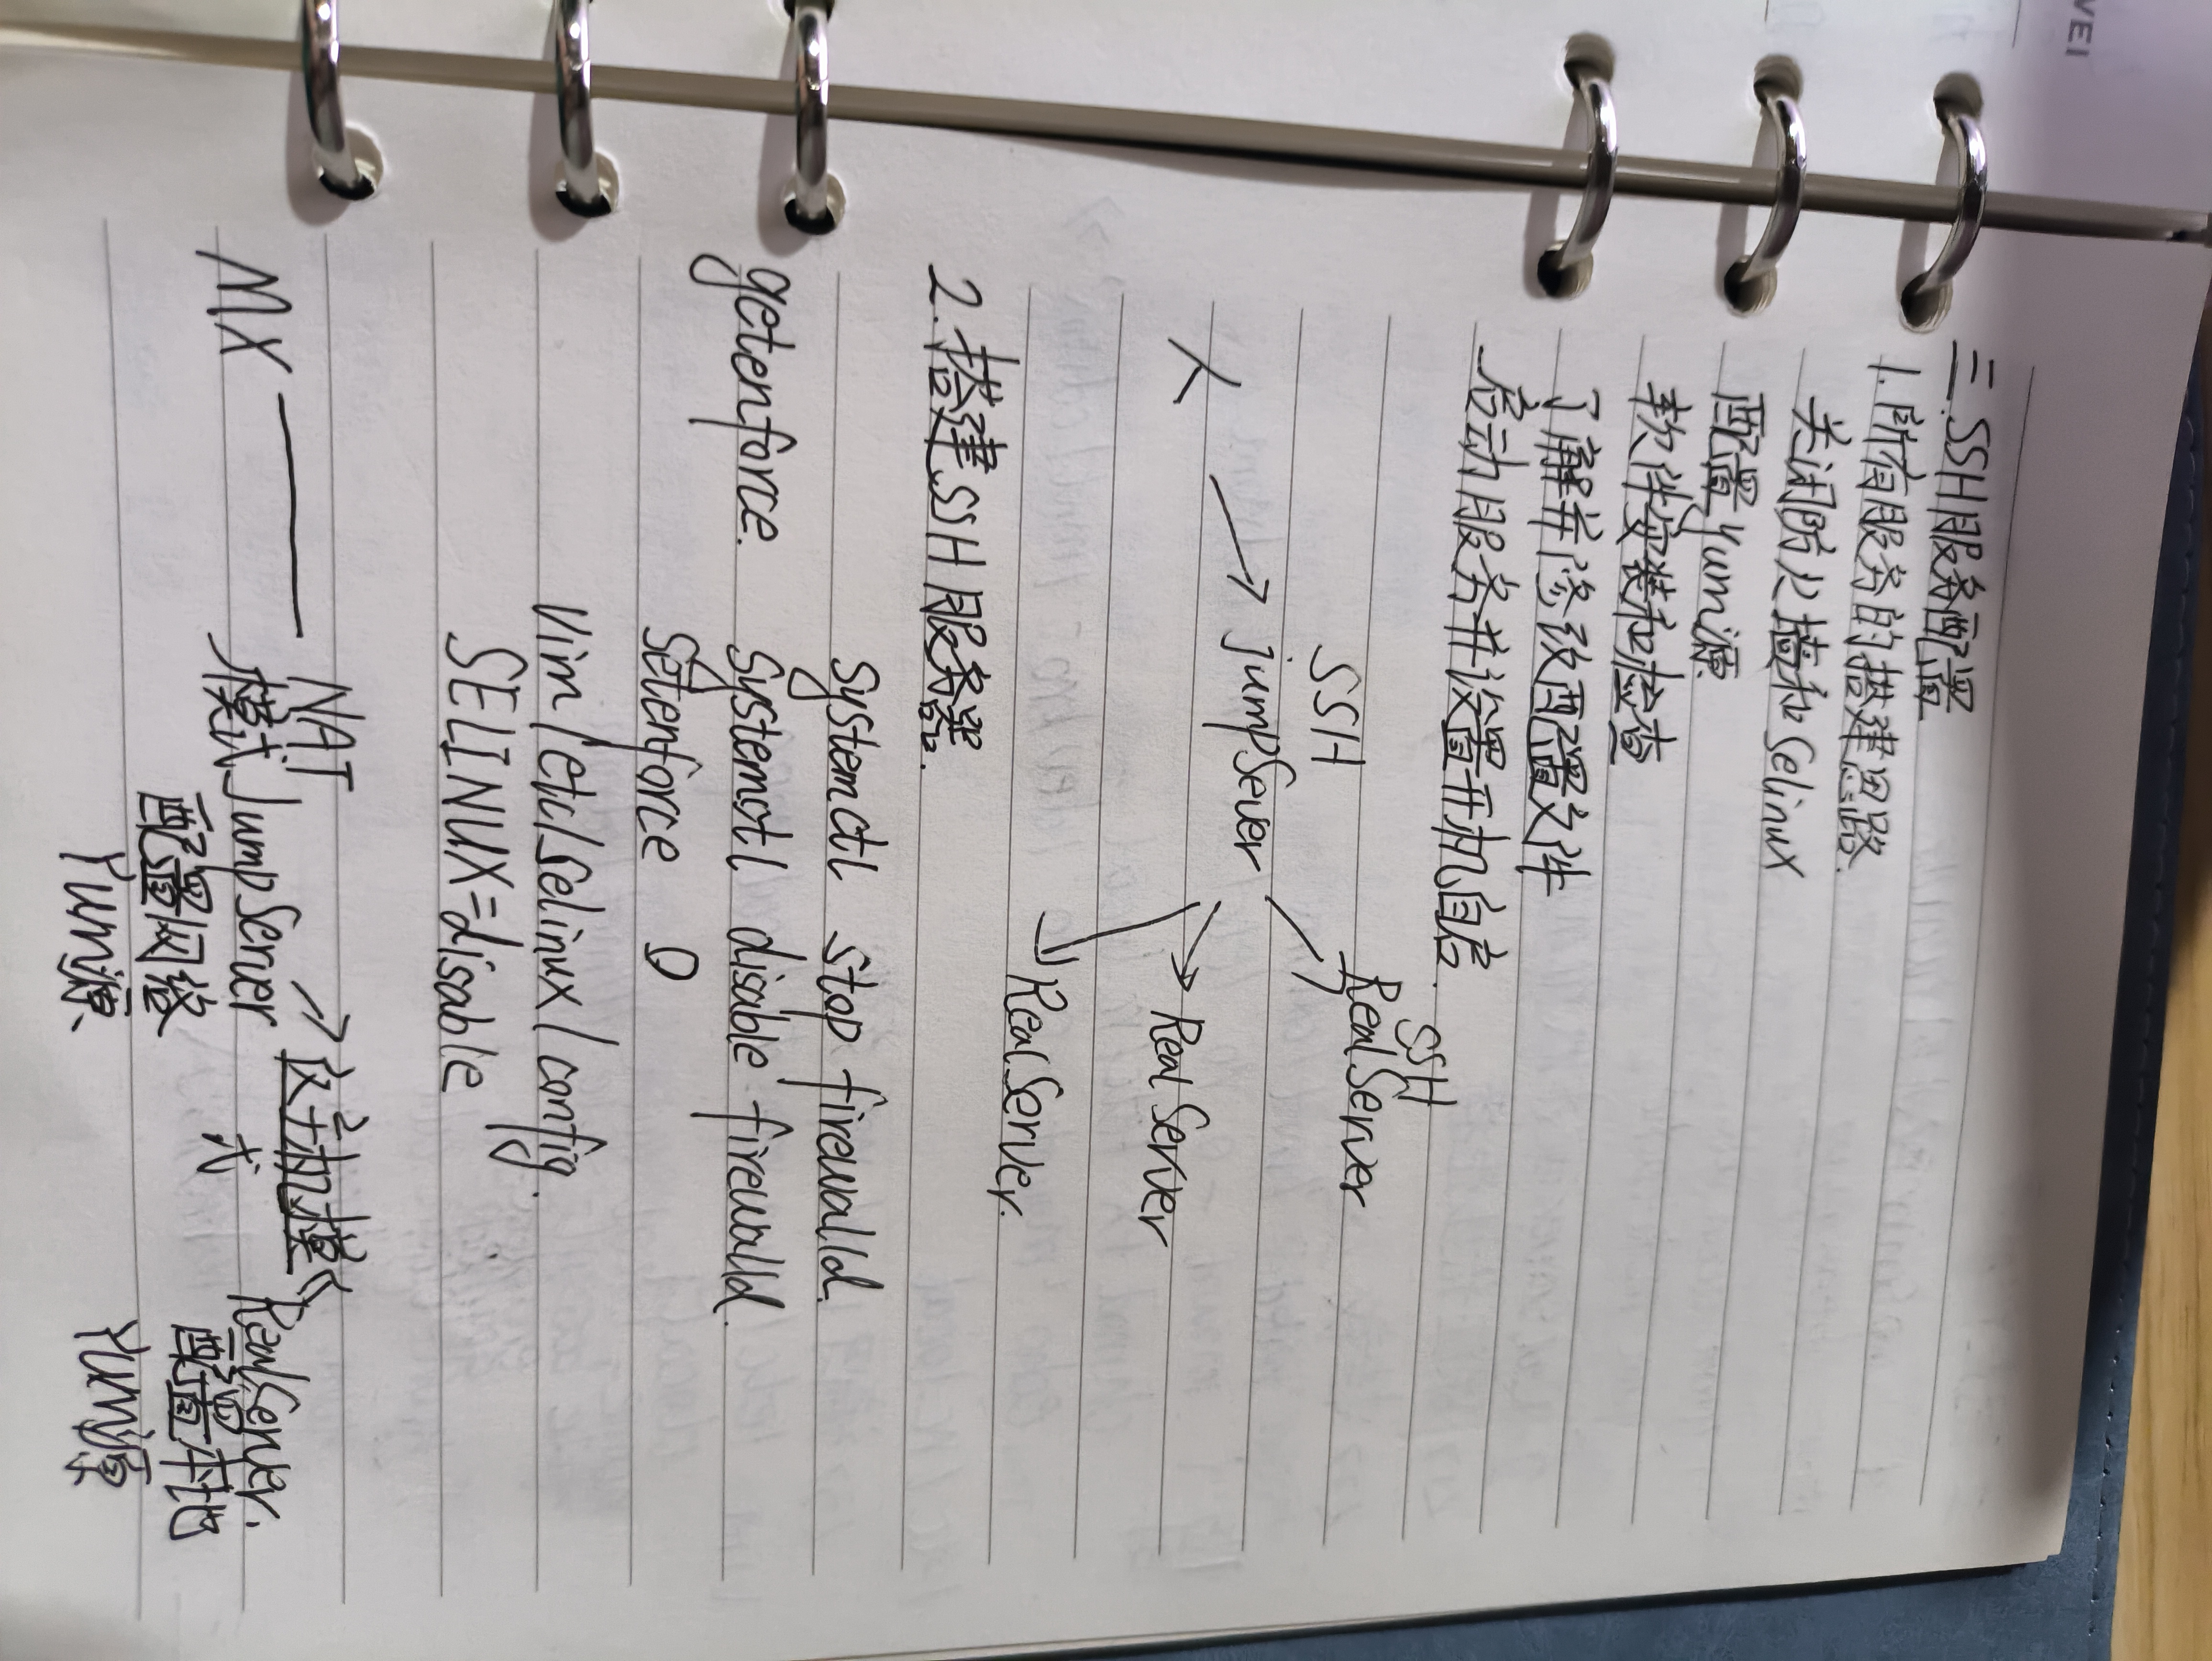 三.SSH服务配置
1.所有服务的搭建思路
关闭防火墙和Selinux
配置yum源
软件安装和检查
了解并修改配置文件
启动服务并设置开机自启.
SSH
SSH
人 → jumpSever → RealServer
→ Real Server
→ RealServer.
2.搭建SSH服务器.
Systemctl stop firewalld.
getenforce. Systemctl disable firewalld.
Setenforce 0
Vim /etc/selinux/config.
SELINUX=disable
MX —— NAT
模式 JumpServer → 仅主机模式 RealServer.
配置网络 配置本地
Yum源. Yum源
VEI